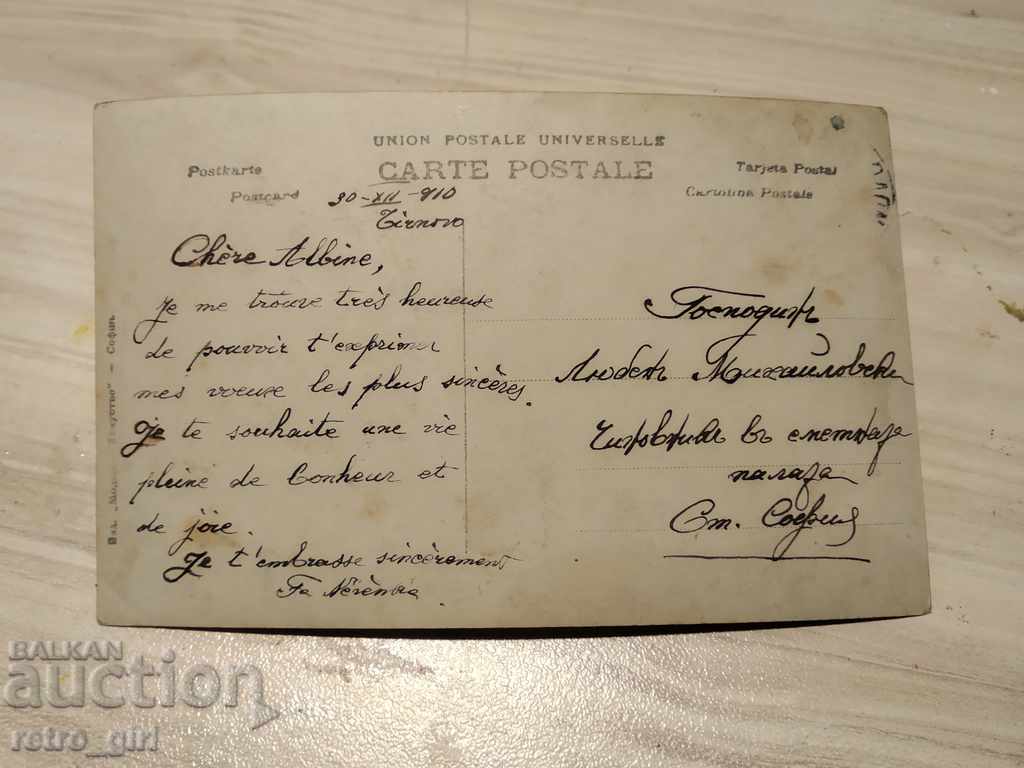 UNION POSTALE UNIVERSELLE
CARTE POSTALE
Postkarte
Postcard
Tarjeta Postal
Cartolina Postale
30-XII-910
Tirnovo
Chère Albine,
Je me trouve très heureuse
de pouvoir t'exprimer
mes voeuse les plus sincères.
Je te souhaite une vie
pleine de bonheur et
de joie.
Je t'embrasse sincèrement
Ta
Господин
Любен Михайловски
Чиновник в сметната
палата
Ст. София
Изкуство" – София
BALKAN
auction
retro_girl